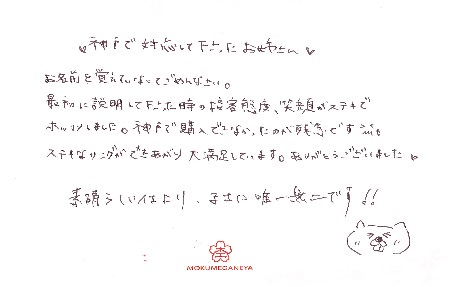 ♥神戸で対応して下さったお姉さん♥
お名前を覚えていなくてごめんなさい。
最初に説明して下さった時の接客態度、笑顔がステキで
ホッコリしました。神戸で購入できなかったのが残念です
ステキなリングができあがり大満足しています。ありがとうございました♥
素晴らしい仕上り、まさに唯一無二です!!
MOKUMEGANEYA